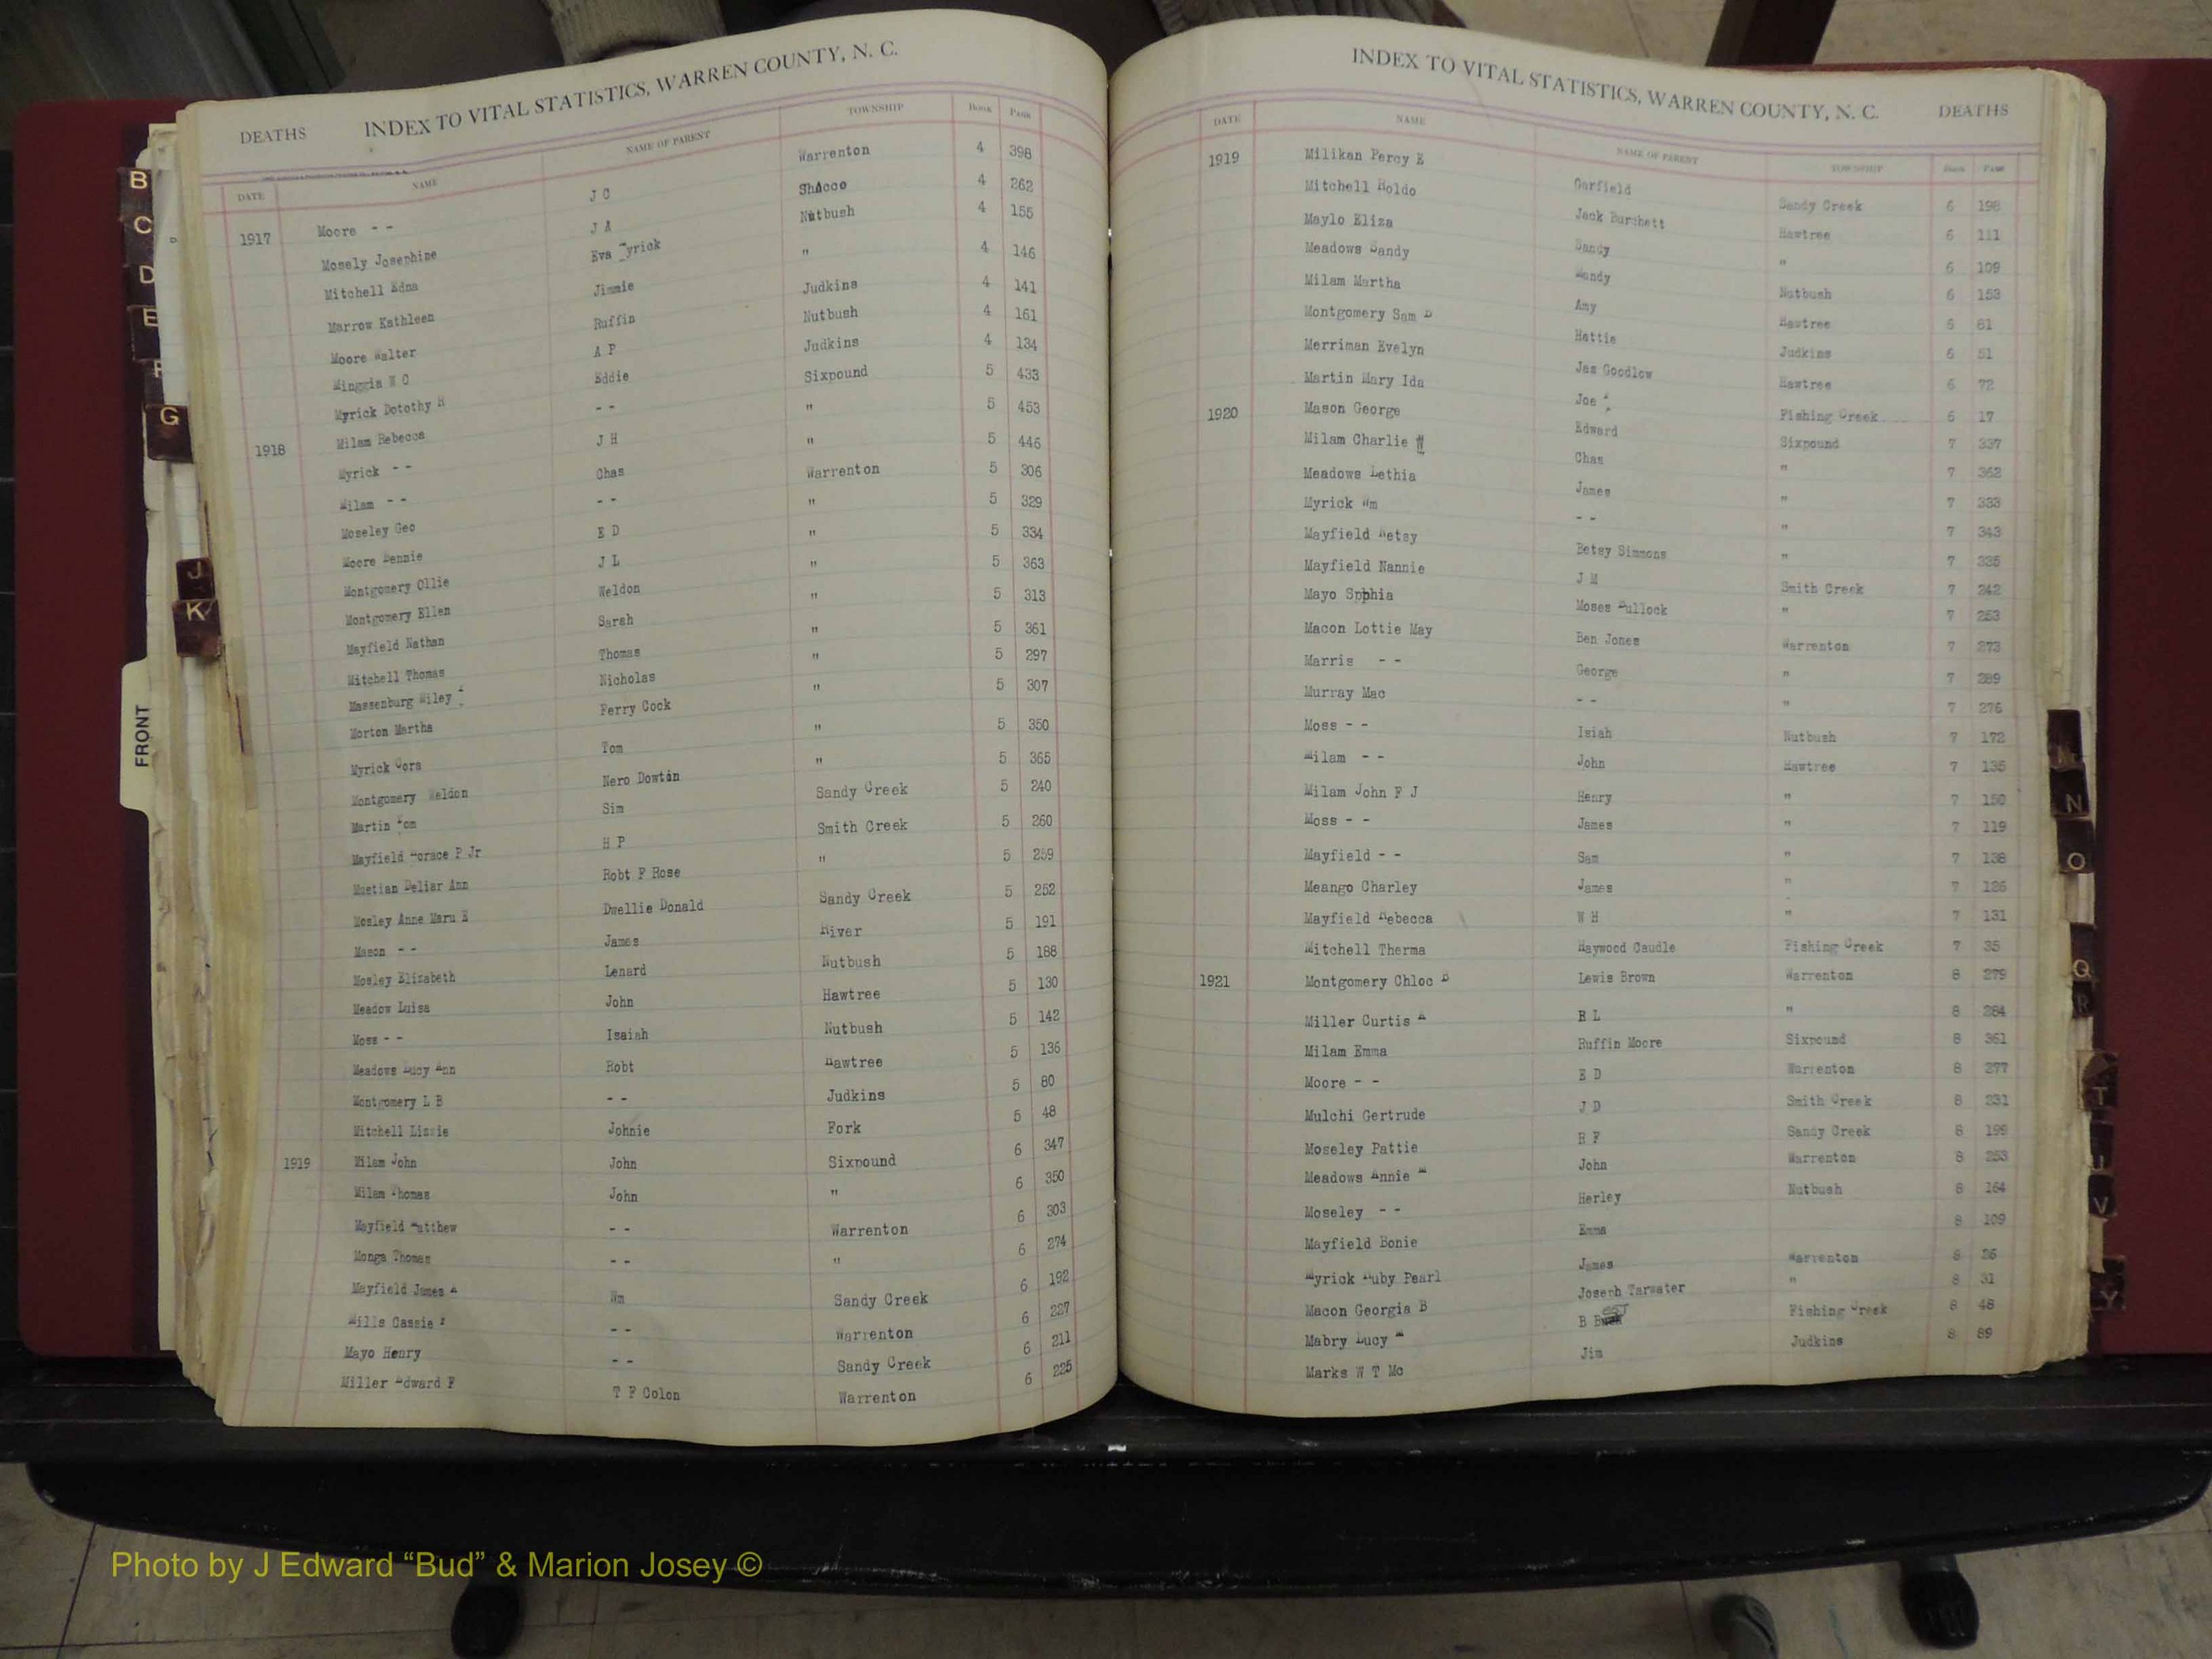 INDEX TO VITAL STATISTICS, WARREN COUNTY, N. C.
DEATHS
DATE NAME NAME OF PARENT TOWNSHIP BOOK PAGE
1917 Moore - - J C Warrenton 4 398
Mosely Josephine J A Shocco 4 262
Mitchell Edna Eva Myrick Nutbush 4 155
Marrow Kathleen Jimmie " 4 146
Moore Walter Ruffin Judkins 4 141
Minggia W C A P Nutbush 4 161
Myrick Dotothy H Eddie Judkins 4 134
1918 Milam Rebecca - - Sixpound 5 433
Myrick - - J H " 5 453
Milam - - Chas " 5 446
Moseley Geo - - Warrenton 5 306
Moore Bennie E D " 5 329
Montgomery Ollie J L " 5 334
Montgomery Ellen Weldon " 5 363
Mayfield Nathan Sarah " 5 313
Mitchell Thomas Thomas " 5 361
Massenburg Wiley Nicholas " 5 297
Morton Martha Perry Cock " 5 307
Myrick Cora Tom " 5 350
Montgomery Weldon Nero Dowtin " 5 365
Martin Tom Sim Sandy Creek 5 240
Mayfield Horace P Jr H P Smith Creek 5 260
Mustian Deliar Ann Robt F Rose " 5 259
Mosley Anne Maru E Dwellie Donald Sandy Creek 5 252
Mason - - James River 5 191
Mosley Elizabeth Lenard Nutbush 5 188
Meadow Luisa John Hawtree 5 130
Moss - - Isaiah Nutbush 5 142
Meadows Lucy Ann Robt Hawtree 5 136
Montgomery L B - - Judkins 5 80
Mitchell Lizzie Johnie Fork 5 48
1919 Milam John John Sixpound 6 347
Milam Thomas John " 6 350
Mayfield Matthew - - Warrenton 6 303
Monga Thomas - - " 6 274
Mayfield James A Wm Sandy Creek 6 192
Mills Cassie - - Warrenton 6 227
Mayo Henry - - Sandy Creek 6 211
Miller Edward F T F Colon Warrenton 6 225
INDEX TO VITAL STATISTICS, WARREN COUNTY, N. C.
DEATHS
DATE NAME NAME OF PARENT TOWNSHIP BOOK PAGE
1919 Milikan Percy E Garfield Sandy Creek 6 198
Mitchell Roldo Jack Burchett Hawtree 6 111
Maylo Eliza Sandy " 6 109
Meadows Sandy Mandy Nutbush 6 153
Milam Martha Amy Hawtree 6 81
Montgomery Sam D Hattie Judkins 6 51
Merriman Evelyn Jas Goodlow Hawtree 6 72
Martin Mary Ida Joe Fishing Creek 6 17
1920 Mason George Edward Sixpound 7 337
Milam Charlie W Chas " 7 362
Meadows Lethia James " 7 333
Myrick Wm - - " 7 343
Mayfield Betsy Betsy Simmons " 7 335
Mayfield Nannie J M Smith Creek 7 242
Mayo Sophia Moses Bullock " 7 253
Macon Lottie May Ben Jones Warrenton 7 273
Marris - - George " 7 289
Murray Mac - - " 7 276
Moss - - Isiah Nutbush 7 172
Milam - - John Hawtree 7 135
Milam John F J Henry " 7 150
Moss - - James " 7 119
Mayfield - - Sam " 7 138
Meango Charley James " 7 126
Mayfield Rebecca W H " 7 131
Mitchell Therma Haywood Caudle Fishing Creek 7 35
1921 Montgomery Chloc B Lewis Brown Warrenton 8 279
Miller Curtis A R L " 8 284
Milam Emma Ruffin Moore Sixpound 8 361
Moore - - E D Warrenton 8 277
Mulchi Gertrude J D Smith Creek 8 231
Moseley Pattie R F Sandy Creek 8 199
Meadows Annie M John Warrenton 8 253
Moseley - - Herley Nutbush 8 164
Mayfield Bonie Emma 8 109
Myrick Ruby Pearl James Warrenton 8 26
Macon Georgia B Joseph Tarwater " 8 31
Mabry Lucy M B Fishing Creek 8 48
Marks W T Mc Jim Judkins 8 89
B
C
D
E
F
G
J
K
FRONT
N
O
Q
R
T
U
V
Y
Photo by J Edward “Bud” & Marion Josey ©